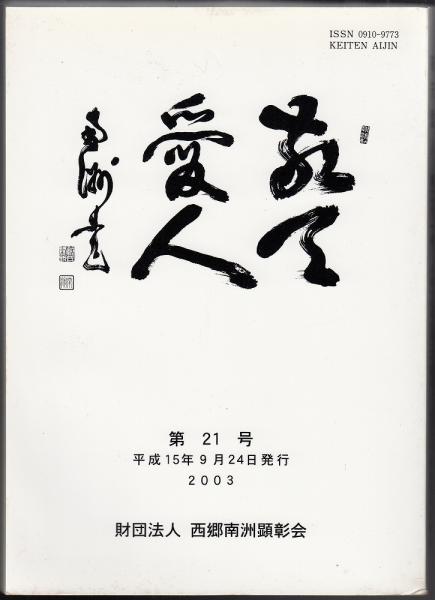 ISSN 0910-9773
KEITEN AIJIN
敬天
愛人
南洲書
第 21 号
平成15年9月24日発行
2003
財団法人 西郷南洲顕彰会